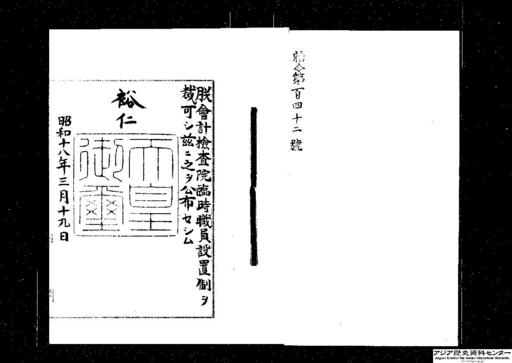 勅令第百四十二號
朕會計檢査院臨時職員設置制ヲ
裁可シ茲ニ之ヲ公布セシム
裕仁
天皇
御璽
昭和十八年三月十九日
アジア歴史資料センター
Japan Center for Asian Historical Records